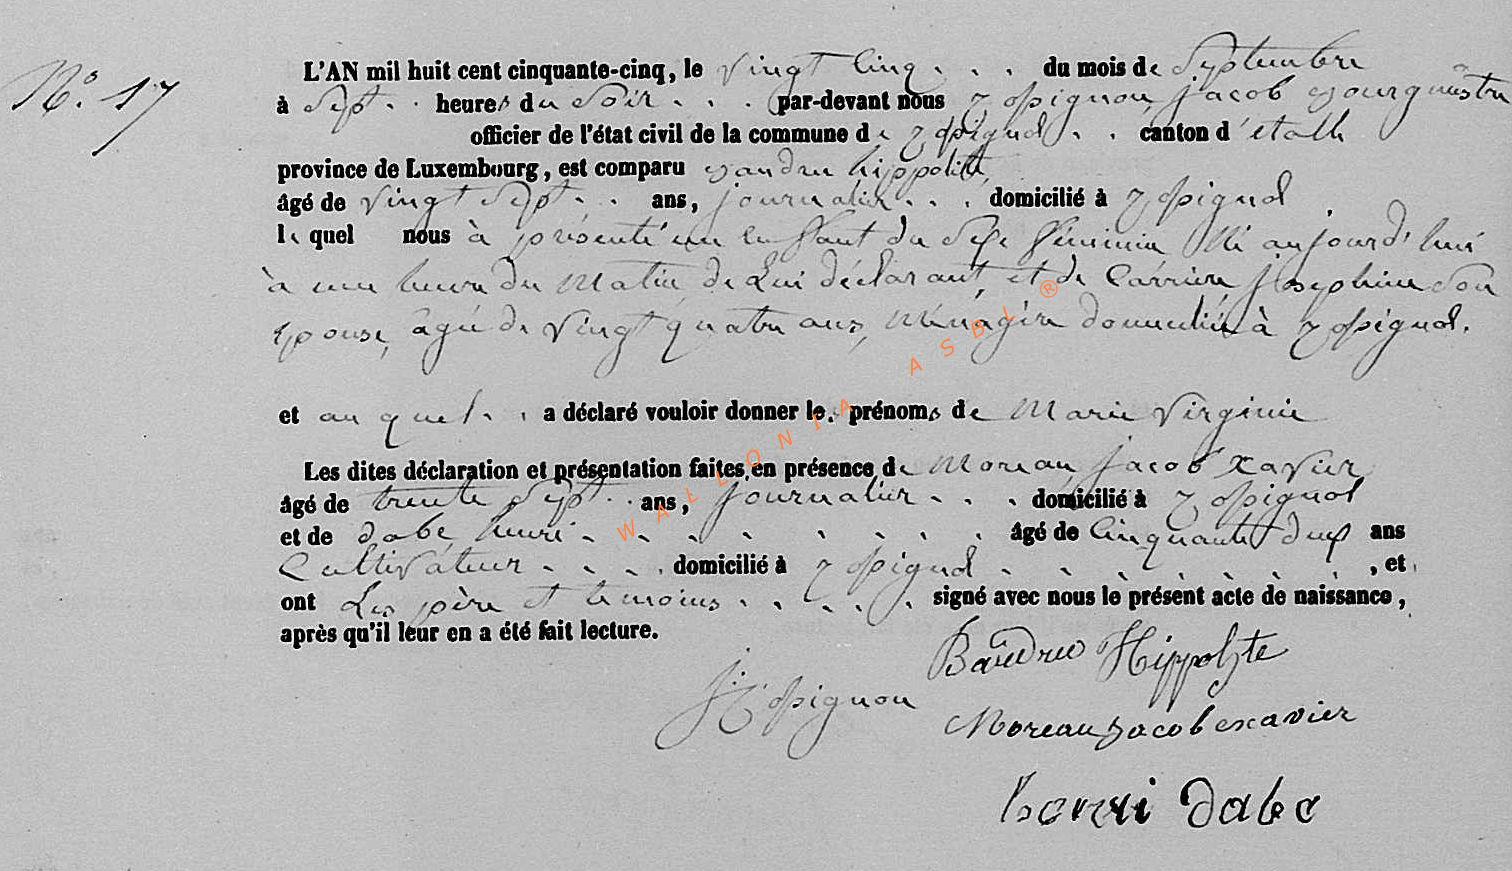 N° 17
L'AN mil huit cent cinquante-cinq, le vingt cinq du mois de Septembre
à Sept heures du Soir par-devant nous Jacob
officier de l'état civil de la commune de canton d'étalle
province de Luxembourg, est comparu Baudru hippolite
âgé de vingt Sept ans, journalier domicilié à
le quel nous à présenté un enfant du Sexe féminin Né aujourd'hui
à une heure du Matin de Lui déclarant, et de Carrière Josephine Son
Epouse, âgée de vingt quatre ans, Ménagère domiciliée à
et au quel a déclaré vouloir donner les prénoms de Marie Virginie
Les dites déclaration et présentation faites en présence de Moreau Jacob Xavier
âgé de trente Sept ans, journalier domicilié à
et de dabe henri âgé de Cinquante deux ans
Cultivateur domicilié à , et
ont Les père et temoins signé avec nous le présent acte de naissance,
après qu'il leur en a été fait lecture.
Baudru Hippolyte
Moreau Jacob exavier
henri dabe
WALLONIA ASBL ®